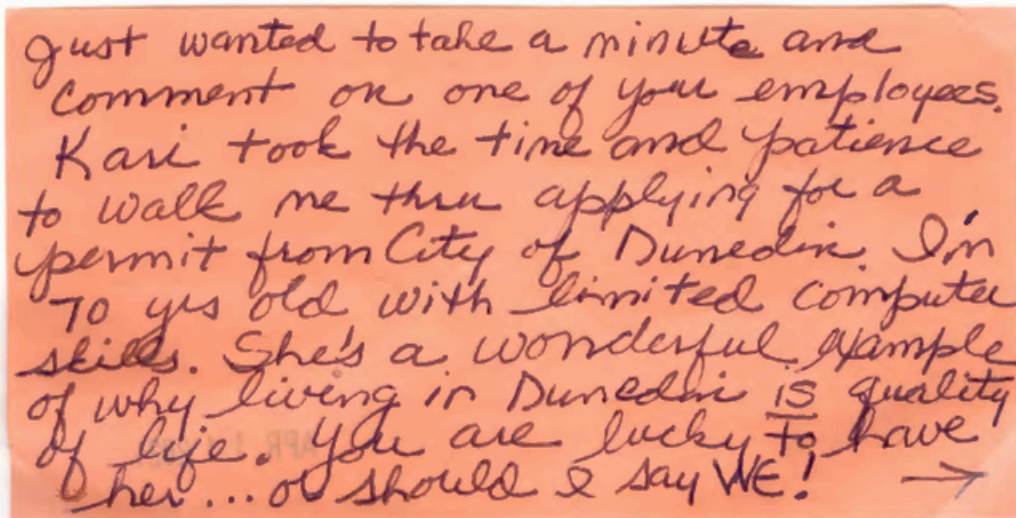 Just wanted to take a minute and
comment on one of your employees.
Kari took the time and patience
to walk me thru applying for a
permit from City of Dunedin. I'm
70 yrs old with limited computer
skills. She's a wonderful example
of why living in Dunedin is quality
of life. You are lucky to have
her... or should I say WE! →